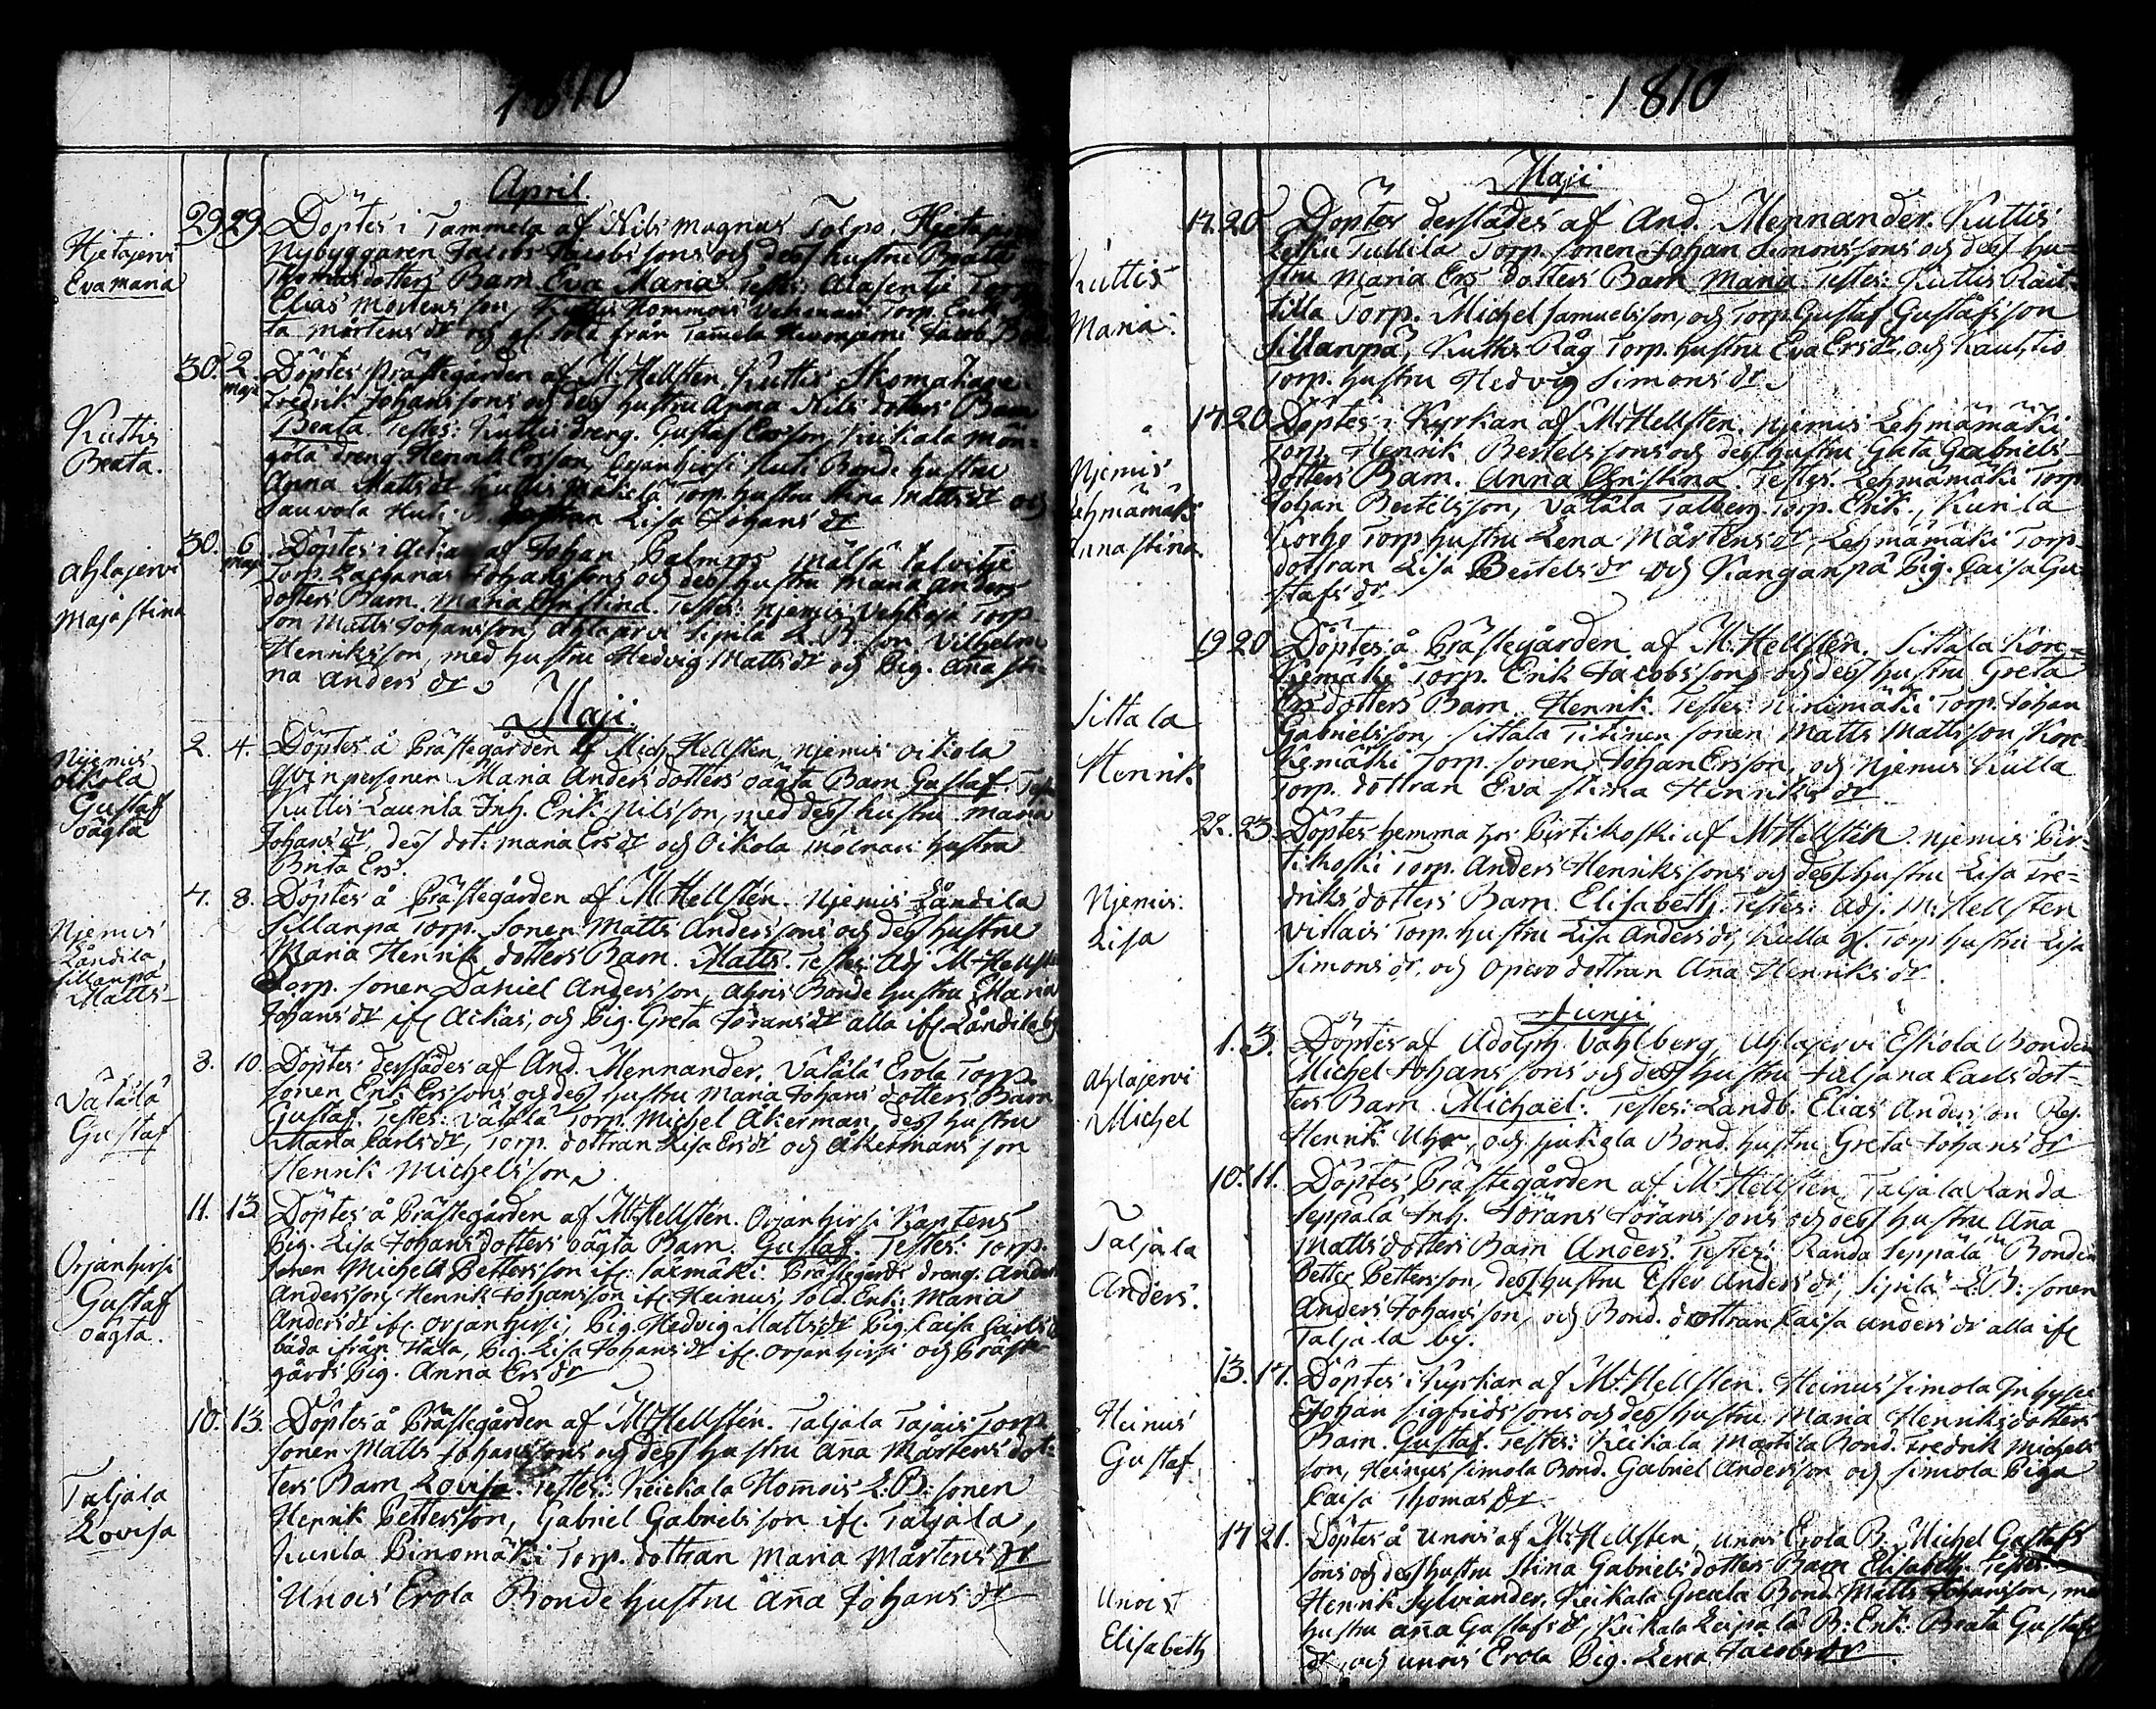 1810
April.
Hjetajervi
Evamaria
29 29 Döptes i Tammela af Nils Magnus Tolpo, Hjetajer
Nybyggaren Jacob Jacobssons och dess hustru Beata
Thomasdotters Barn Eva Maria. Testes: Alasentie Torp
Elias Mortensson, Kuttis Hommois Torp. Enk
ta Mårtens dr och gl. Sold från Tamela Jacob
Kuttis
Beata.
30. 2 Maji Döptes Prästegården af M. Hellsten, Kuttis Skomakare
Fredrik Johanssons och dess hustru Anna Nils dotters Barn
Beata. Testes: Kuttis dreng. Gustaf Ersson, Keikala Mön=
gölä dreng. Henrik Ersson, Orjanhirsi Bonde hustru
Anna Matts dr Kuttis Mäkelä Torp. hustru Stina Mattsdr och
Sauvola Lisa Johans dr
Ahlajervi
Maja stina
30. 6 maj Döptes i af Johan Palmros Mälsä Talvitie
Torp. Zacharias Johanssons och dess hustru Maria Anders
dotters Barn. Maria Christina. Testes: Njemis Torp
son Matts Johansson, Ahlajervi Sipilä L. B. son. Vilhelm
Henriksson, med hustru Hedvig Matts dr och Pig. Ana sti=
na Anders dr
Maji.
Njemis
Oikola
Gustaf
oägta
2. 4. Döptes å Prästegården af Mich. Hellsten, Njemis Oikola
qvinpersonen Maria Anders dotters oägta Barn Gustaf. Testes
Kuttis Laurila Inh. Erik Nilsson, med dess hustru Maria
Johans dr, dess dot. Maria Ers dr och Oikola hustru
Brita Ers.
Njemis
Låndila,
Sillanpä
Matts
7. 8. Döptes å Prästegården af M. Hellstén. Njemis Låndila
Sillanpä Torp. Sonen Matts Anderssons och dess hustru
Maria Henrik dotters Barn. Matts. Testes: Adj M. Hellsten
Torp. sonen Daniel Andersson, Bonde hustru Maria
Johans dr ifr Ackas, och Pig. Greta Jörans dr alla ifr Låndila by
Vätälä
Gustaf
8. 10. Döptes derstädes af And. Mennander. Vätälä Erola Torp.
sonen Eric Erssons och dess hustru Maria Johans dotters Barn
Gustaf. Testes: Vätälä Torp. Michel Åkerman, dess hustru
Maria Carls dr, Torp. dottran Lisa Ers dr och Åkermans son
Henrik Michelsson
Orjanhirsi
Gustaf
oägta.
11. 13 Döptes å Prästegården af M. Hellstén. Orjanhirsi Kaptens
Pig. Lisa Johans dotters oägta Barn. Gustaf. Testes: Torp.
sonen Michels Pettersson ifr Prästegårds dreng. Anders
Andersson, Henrik Johansson ifr Heinus, Sold. Enk: Maria
Anders dr ifr orjanhirsi, Pig. Hedvig Matts dr Pig. Caisa Carls dr
båda ifrån Hala, Pig. Lisa Johans dr ifr. Orjanhirsi och Präste
gårds Pig. Anna Ers dr
Taljala
Lovisa
10. 13. Döptes å Prästegården af M. Hellstén. Taljala Tajais Torp
sonen Matts Johanssons och dess hustru Aña Mårtens dot=
ters Barn Lovisa. Testes: Keickala Homois L. B: sonen
Henrik Pettersson, Gabriel Gabrielsson ifr. Taljala,
Kurila Pinomäki Torp. dottran Maria Mårtens dr
Unois Erola Bonde hustru Aña Johans dr
1810
Maji
Kuttis
Maria.
17. 20 Döptes derstädes af And. Mennander. Kuttis
Tullila Torp. sonen Johan Simonssons och dess hu=
stru Maria Ers dotters Barn Maria Testes: Kuttis Raut=
tilla Torp. Michel Samuelsson, och Torp. Gustaf Gustafsson
Sillanpä, Kuttis Råg Torp. hustru Eva Ers dr, och Kauttio
Torp. hustru Hedvig Simons dr.
Njemis
Lehmämäki
Anna stina.
17 20 Döptes i Kyrkan af M. Hellsten. Njemis Lehmämäki
Torp. Henrik Bertelssons och dess hustru Greta Gabriels=
dotters Barn. Anna Christina. Testes. Lehmämäki Torp
Johan Bertelsson, Vätälä Talberg Torp. Erik., Kurila
Korho Torp hustru Lena Mårtens dr, Lehmämäki Torp
dottran Lisa Bertels dr och Kanganpä Pig. Caisa Gu
stafs dr
Sittala
Henrik
19 20 Döptes å Prästegården af M. Hellstén. Sittala Kor=
kemäki Torp. Erik Jacobsson och dess hustru Greta
Ers dotters Barn. Henrik. Testes: Ninimäki Torp. Johan
Gabrielsson, Sittala Titinen sonen Matts Mattsson, Kor=
kemäki Torp. sonen Johan Ersson, och Njemis Kulla
Torp. dottran Eva Stina Henriks dr
Njemis.
Lisa
22. 23. Döptes hemma hos Pirtikoski af M. Hellstén. Njemis Pir=
tikoski Torp. Anders Henrikssons och dess hustru Lisa Fre=
driks dotters Barn. Elisabeth. Testes: Adj. M. Hellsten
Villais Torp. hustru Lisa Anders dr, Kulla gl. Torp. hustru Lisa
Simons dr. och Opero dottran Aña Henriks dr
Junji
Ahlajervi
Michel
1. 3. Döptes af Adolph Vahlberg, Ahlajervi Eskola Bonden
Michel Johans sons och dess hustru Juljana Carls dot=
ters Barn. Michael: Testes: Landb. Elias Andersson Rej.
Henrik Uhr, och Bond. hustru Greta Johans dr
Taljala
Anders.
10. 11. Döptes Prästegården af M. Hellsten, Taljala Randa
Seppälä Inh. Jörans Jöransson's och dess hustru Aña
Matts dotters Barn Anders. Testes: Randa Seppälä Bonden
Petter Pettersson, dess hustru Ester Anders dr, Sipilä L. B: sonen
Anders Johansson, och Bond. dottran Caisa Anders dr alla ifr
Taljala by.
Heinus
Gustaf
13. 17. Döptes i Kyrkan af M. Hellstén. Heinus Simola Inhyses
Johan Sigfridssons och dess hustru Maria Henriksdotters
Barn. Gustaf. Testes: Keikala Martila Bond. Fredrik Michels
son, Heinus Simola Bond. Gabriel Andersson och Simola Piga
Caisa Thomas dr.
Unois
Elisabeth
17 21. Döptes å Unois af M. Hellsten, Unois Erola B. Michel Gustafs
sons och dess hustru Stina Gabriels dotters Barn Elisabeth. Testes:
Henrik Sylviander, Keikala Greula Bond. Matts Johansson, med
hustru Aña Gustafs dr, Keikala Leipälä B: Enk: Beata Gustafs
dr, och Unois Erola Pig. Lena Jacobs dr.